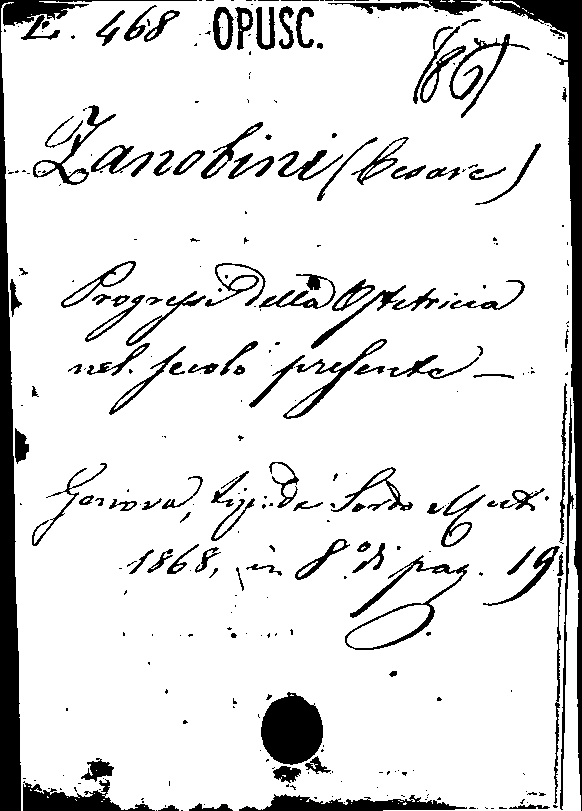 L. 468 OPUSC.
(86)
Zanobini (Cesare)
Progressi della Ostetricia
nel secolo presente —
Genova, tip. de' Sordo Muti
1868, in 8.º di pag. 19